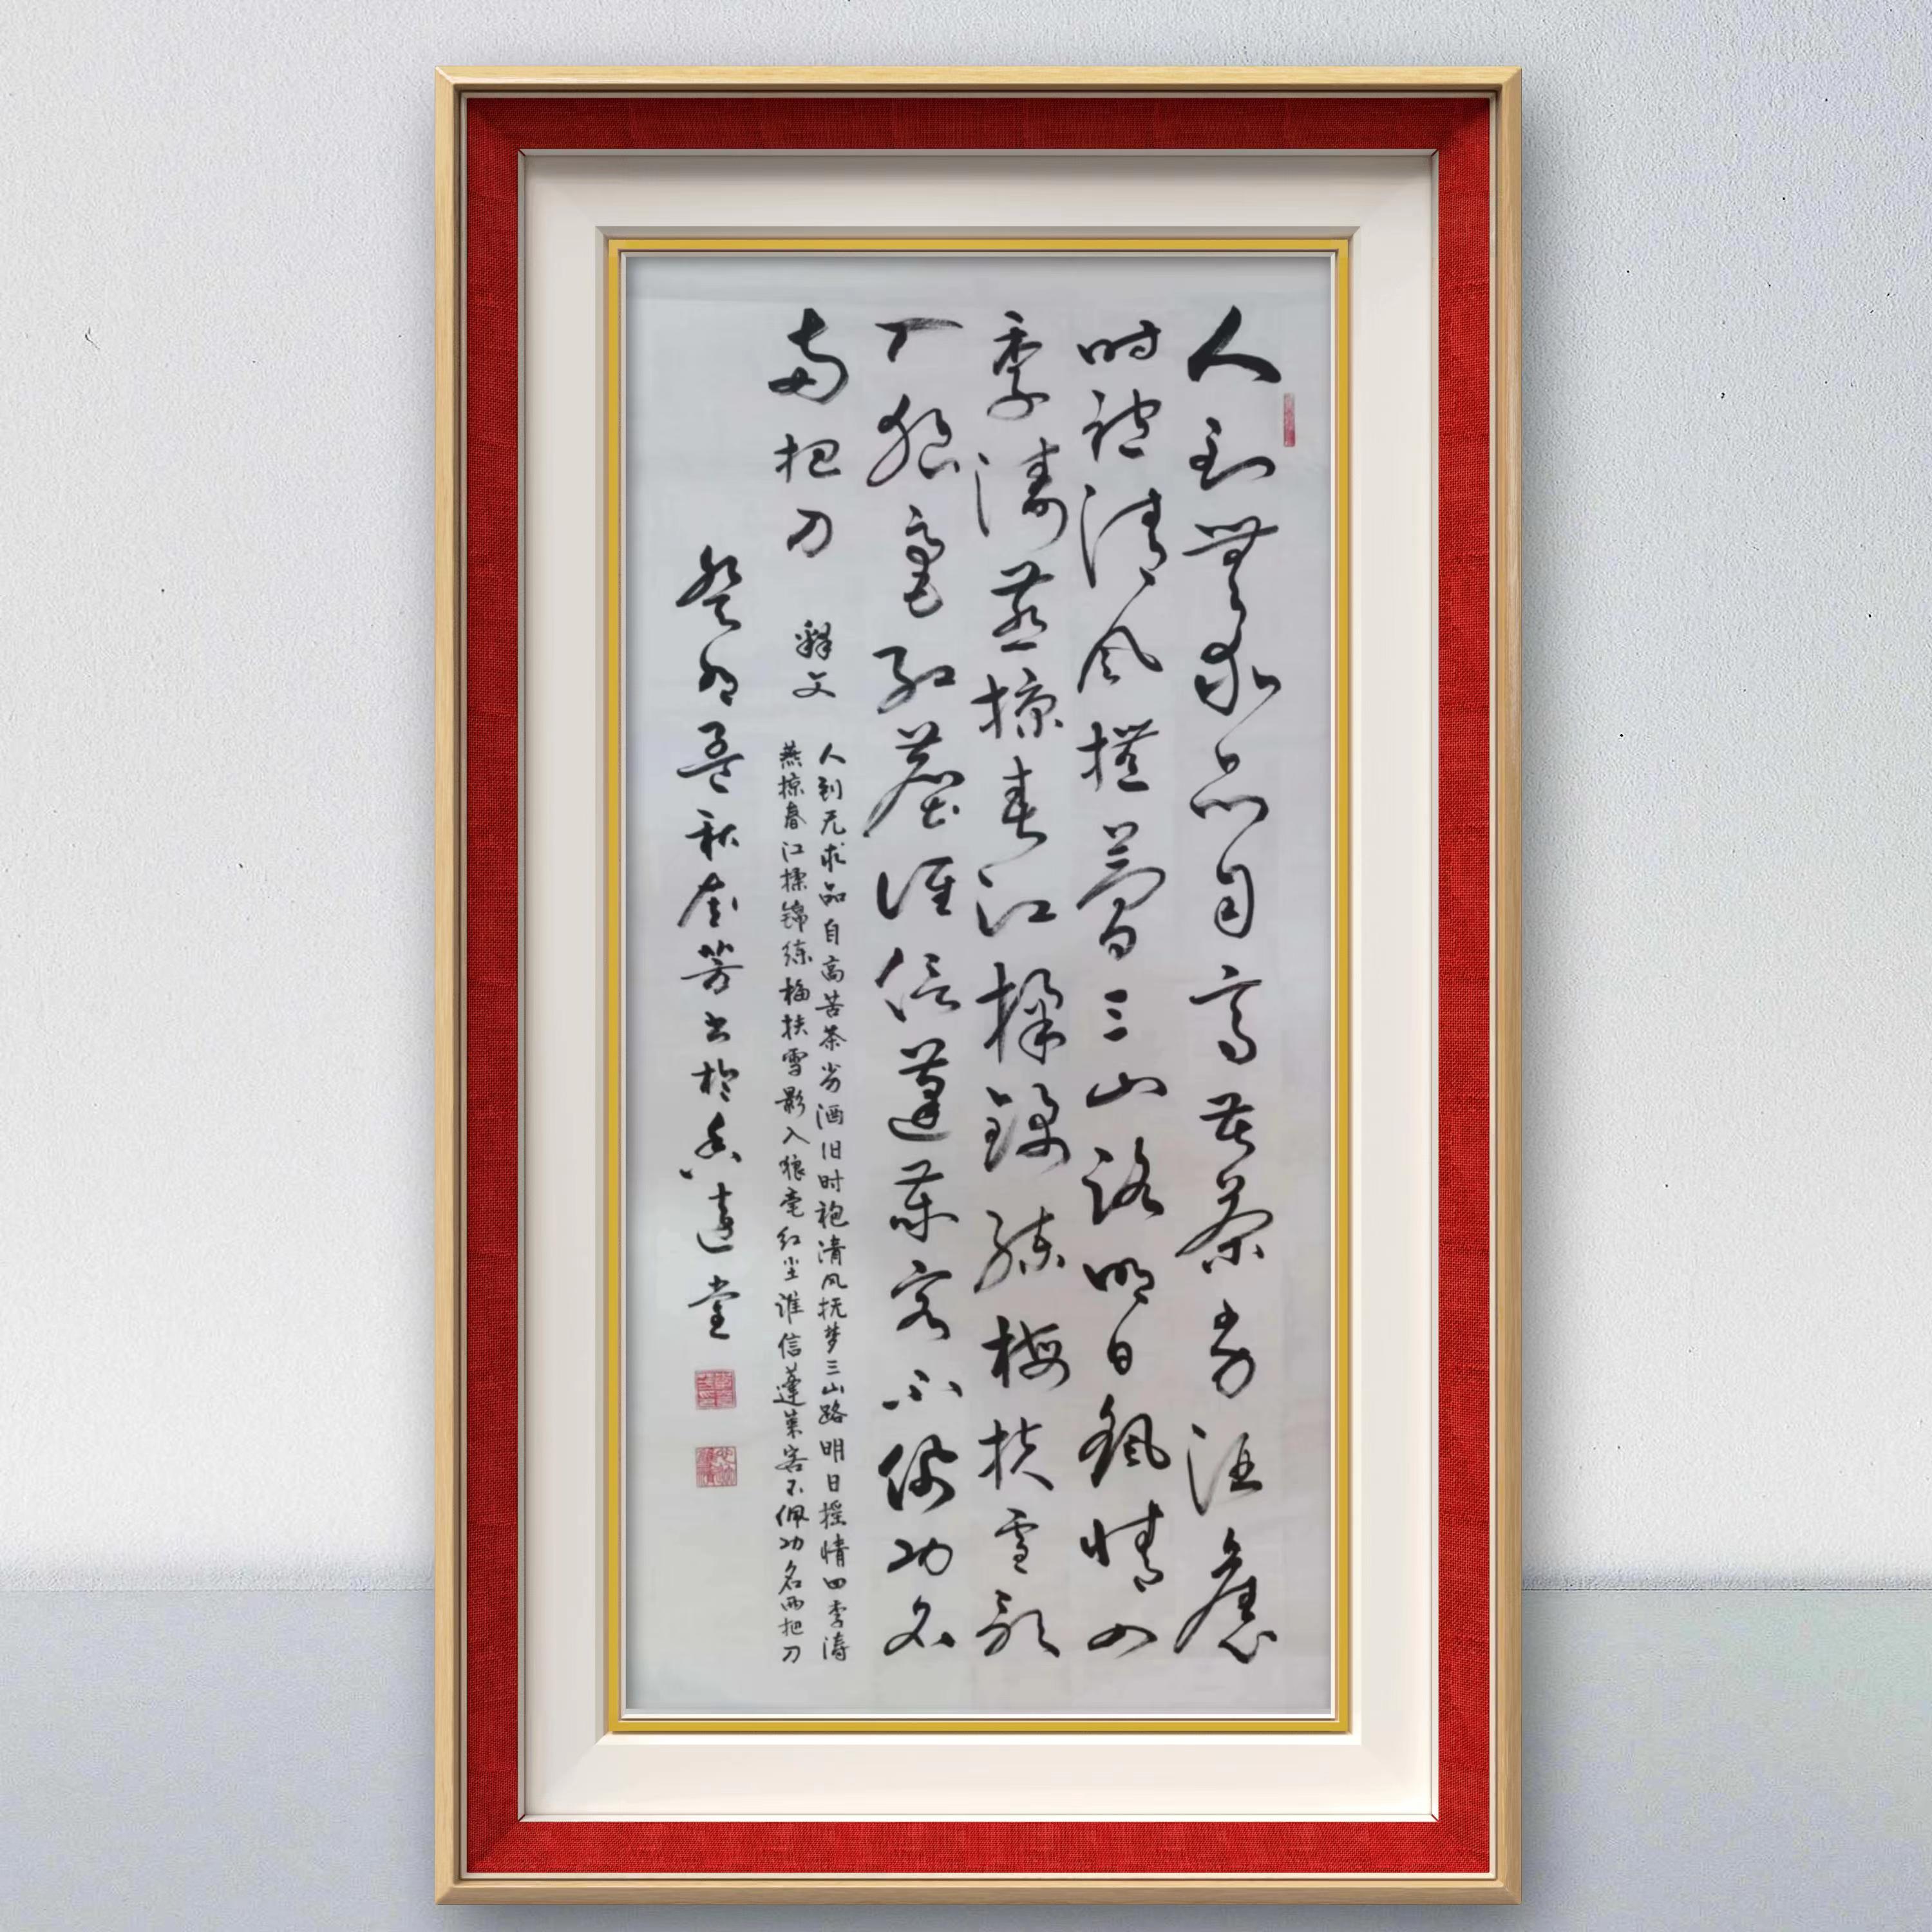 人到無求品自高苦茶劣酒舊
时袍清风撫夢三山路明日摇情四
季涛燕掠春江揉锦练梅扶雪影
入狼毫红尘谁信蓬莱客不佩功名
两把刀
释文
人到无求品自高苦茶劣酒旧时袍清风抚梦三山路明日摇情四季涛
燕掠春江揉锦练梅扶雪影入狼毫红尘谁信蓬莱客不佩功名两把刀
癸卯孟秋奎芳书於堂